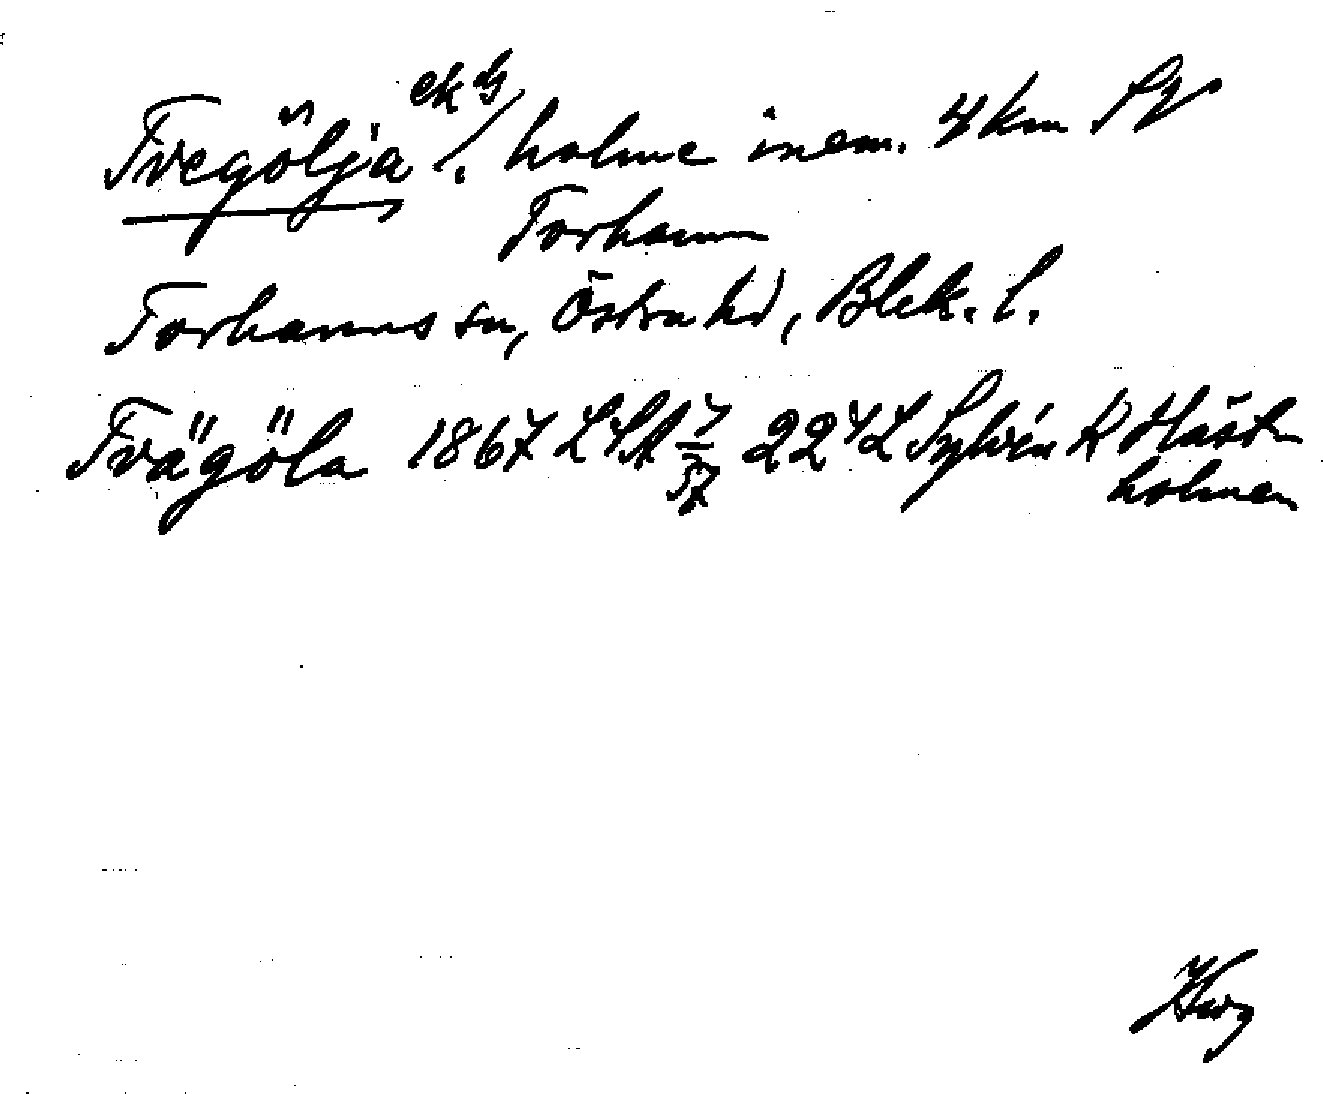 Tvegölja ek G /. holme inem. 4 km SV
Torhamn
Torhamns sn, Östra hd, Blek. l.
Tvägöla 1867 LSA 7/57 224 L Sylvén K Häst-
holmen